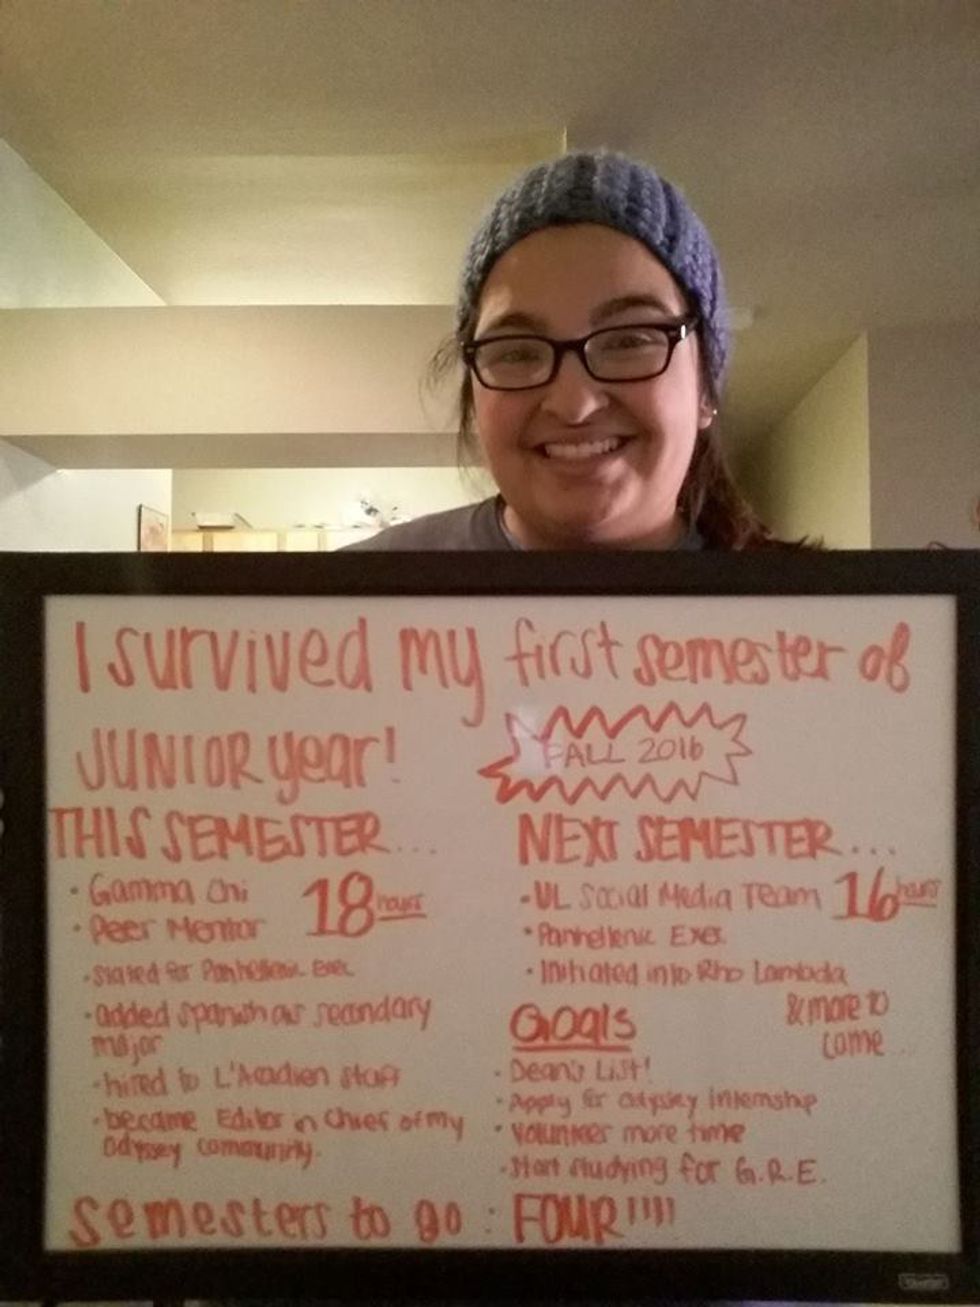 I survived my first semester of
JUNIOR year!
FALL 2016
THIS SEMESTER...
· Gamma Chi
18 hours
· Peer Mentor
· slated for Panhellenic Exec
· added spanish as secondary
major
· hired to L'Acadien staff
· became Editor in Chief of my
Odyssey community.
NEXT SEMESTER...
· UL Social Media Team
16 hours
· Panhellenic Exec
· Initiated into Rho Lambda
& more to
come...
Goals
· Dean's List!
· Apply for Odyssey internship
· Volunteer more time
· Start studying for G.R.E.
Semesters to go: FOUR!!!!